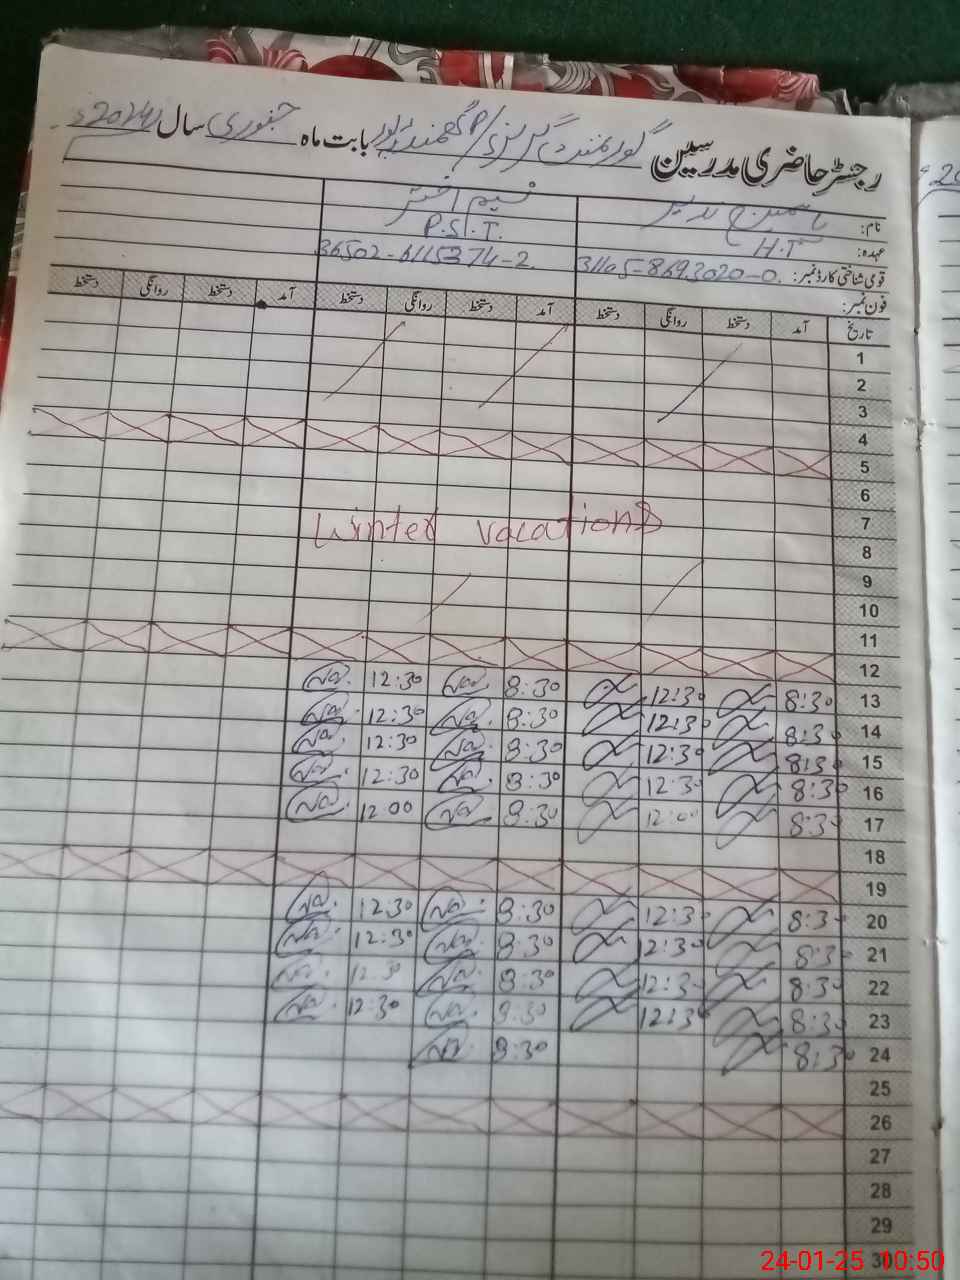 رجسٹر حاضری مدرسین گورنمنٹ گرلز P/S گھمنڈ پور بابت ماہ جنوری سال 2024ء
نام: یاسمین نسیم اختر
عہدہ: H.T P.S.T.
قومی شناختی کارڈ نمبر: 31105-8693020-0. 36502-6115374-2.
فون نمبر:
تاریخ آمد دستخط روانگی دستخط آمد دستخط روانگی دستخط آمد دستخط روانگی دستخط
1
2
3
4
5
6
7 Winter vacations
8
9
10
11
12
13 8:30 12:30 8:30 12:30
14 8:30 12:30 8:30 12:30
15 8:30 12:30 8:30 12:30
16 8:30 12:30 8:30 12:30
17 8:30 12:00 8:30 12:00
18
19
20 8:30 12:30 8:30 12:30
21 8:30 12:30 8:30 12:30
22 8:30 12:30 8:30 12:30
23 8:30 12:30 8:30 12:30
24 8:30 8:30
25
26
27
28
29
30
24-01-25 10:50